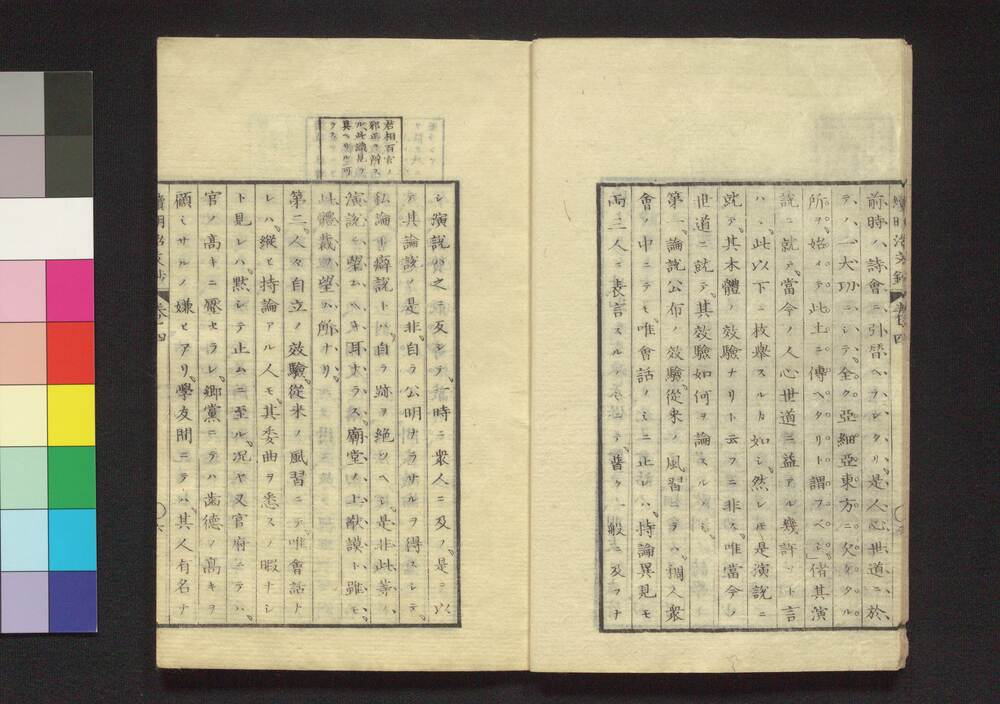 前時ハ詩會ニ引替ヘラレタリ是人心世道ニ於
テノ一大功ニシテ全ク亞細亞東方ニ欠ケタル
所ヲ始メテ此土ニ傳ヘタリト謂フベシ偖其演
説ニ就テ當今ノ人心世道ニ益アル幾許ソト言
ハヽ此以下ニ枚擧スルカ如シ然レ𪜈是演説ニ
就テ其本體ノ效驗ナリト云フニ非ス唯當今ノ
世道ニ就テ其效驗如何ヲ論スルノミ
第一論説公布ノ效驗從來ノ風習ニテハ稠人衆
會ノ中ニテモ唯會話ノミニ止レハ持論異見モ
兩三人ニ表言スルノミニテ普ク一般ニ及フナ
シ演説ハ之ニ反シテ一時ニ衆人ニ及フ是ヲ以
テ其論該ヒ是非自ラ公明ナラサルヲ得スシテ
私論書癖説トハ自ラ跡ヲ絶ツヘシ是非此等ノ
演説ニ望ムヘキ耳ナラス廟堂ノ上猷謨ト雖モ
此體裁ヲ望ム所ナリ
第二人々自立ノ效驗從來ノ風習ニテ唯會話ト
レハ縱ヒ持論アル人モ其委曲ヲ悉スノ暇ナシ
ト見レハ黙シテ止ムニ至ル况ヤ又官府ニテハ
官ノ高キニ壓セラレ鄕黨ニテハ齒德ノ高キヲ
顧ミサルノ嫌ヒアリ學友間ニテハ其人有名ナ
君相百官ノ
邪正ヲ辨ス
ル此識見ヲ